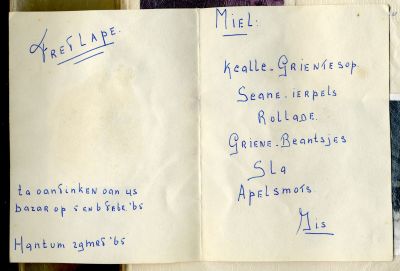 Fretlape.
ta oantinken oan us
bazar op 5 en 6 febr. '65
Hantum 29 mrt '65
Miel:
Kealle-Grientesop
Seane-ierpels
Rollade.
Griene-Beantsjes
Sla
Apelsmots.
Iis